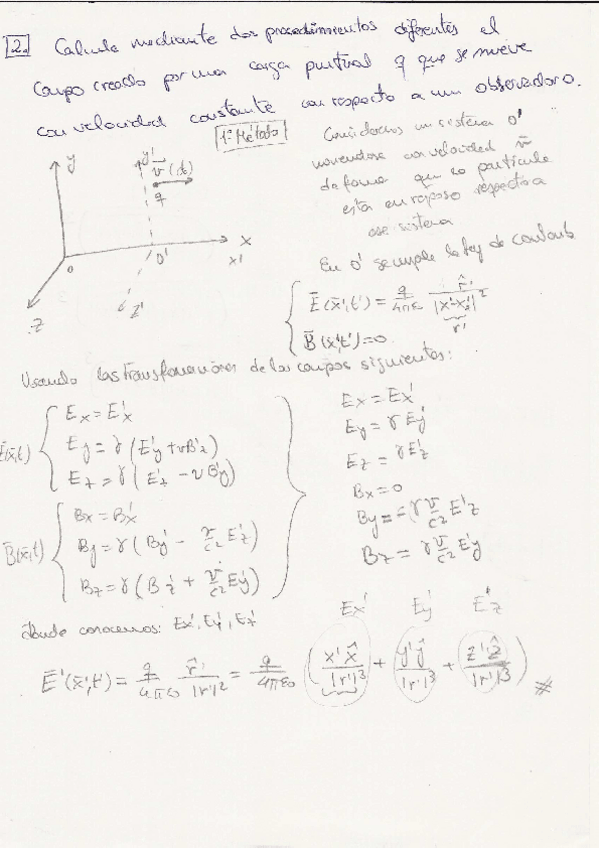 2. Calcula mediante dos procedimientos diferentes el
campo creado por una carga puntual q que se mueve
con velocidad constante con respecto a un observador O.
1º Método
Consideramos un sistema O'
moviendose con velocidad v̄
de forma que la partícula
está en reposo respecto a
ese sistema
y
y'
v̄ (cte)
q
x
x'
O
O'
z
z'
En O' se cumple la ley de Coulomb
Ē(x̄',t') = q/4πε r̂'/|x'-x'₂|²
r'
B̄(x̄',t')=0
Usando las transformaciones de los campos siguientes:
Ē(x̄,t)
Ex = E'x
Ey = γ (E'y + vB'z)
Ez = γ (E'z - vB'y)
B̄(x̄,t)
Bx = B'x
By = γ (By' - v/c² E'z)
Bz = γ (Bz' + v/c² Ey')
Ex = Ex'
Ey = γ Ey'
Ez = γ E'z
Bx = 0
By = -γ v/c² E'z
Bz = γ v/c² E'y
donde conocemos: Ex', Ey', Ez'
Ex' Ey' Ez'
Ē'(x̄',t') = q/4πε₀ r̂'/|r'|² = q/4πε₀ (x'x̂/|r'|³ + y'ŷ/|r'|³ + z'ẑ/|r'|³) #